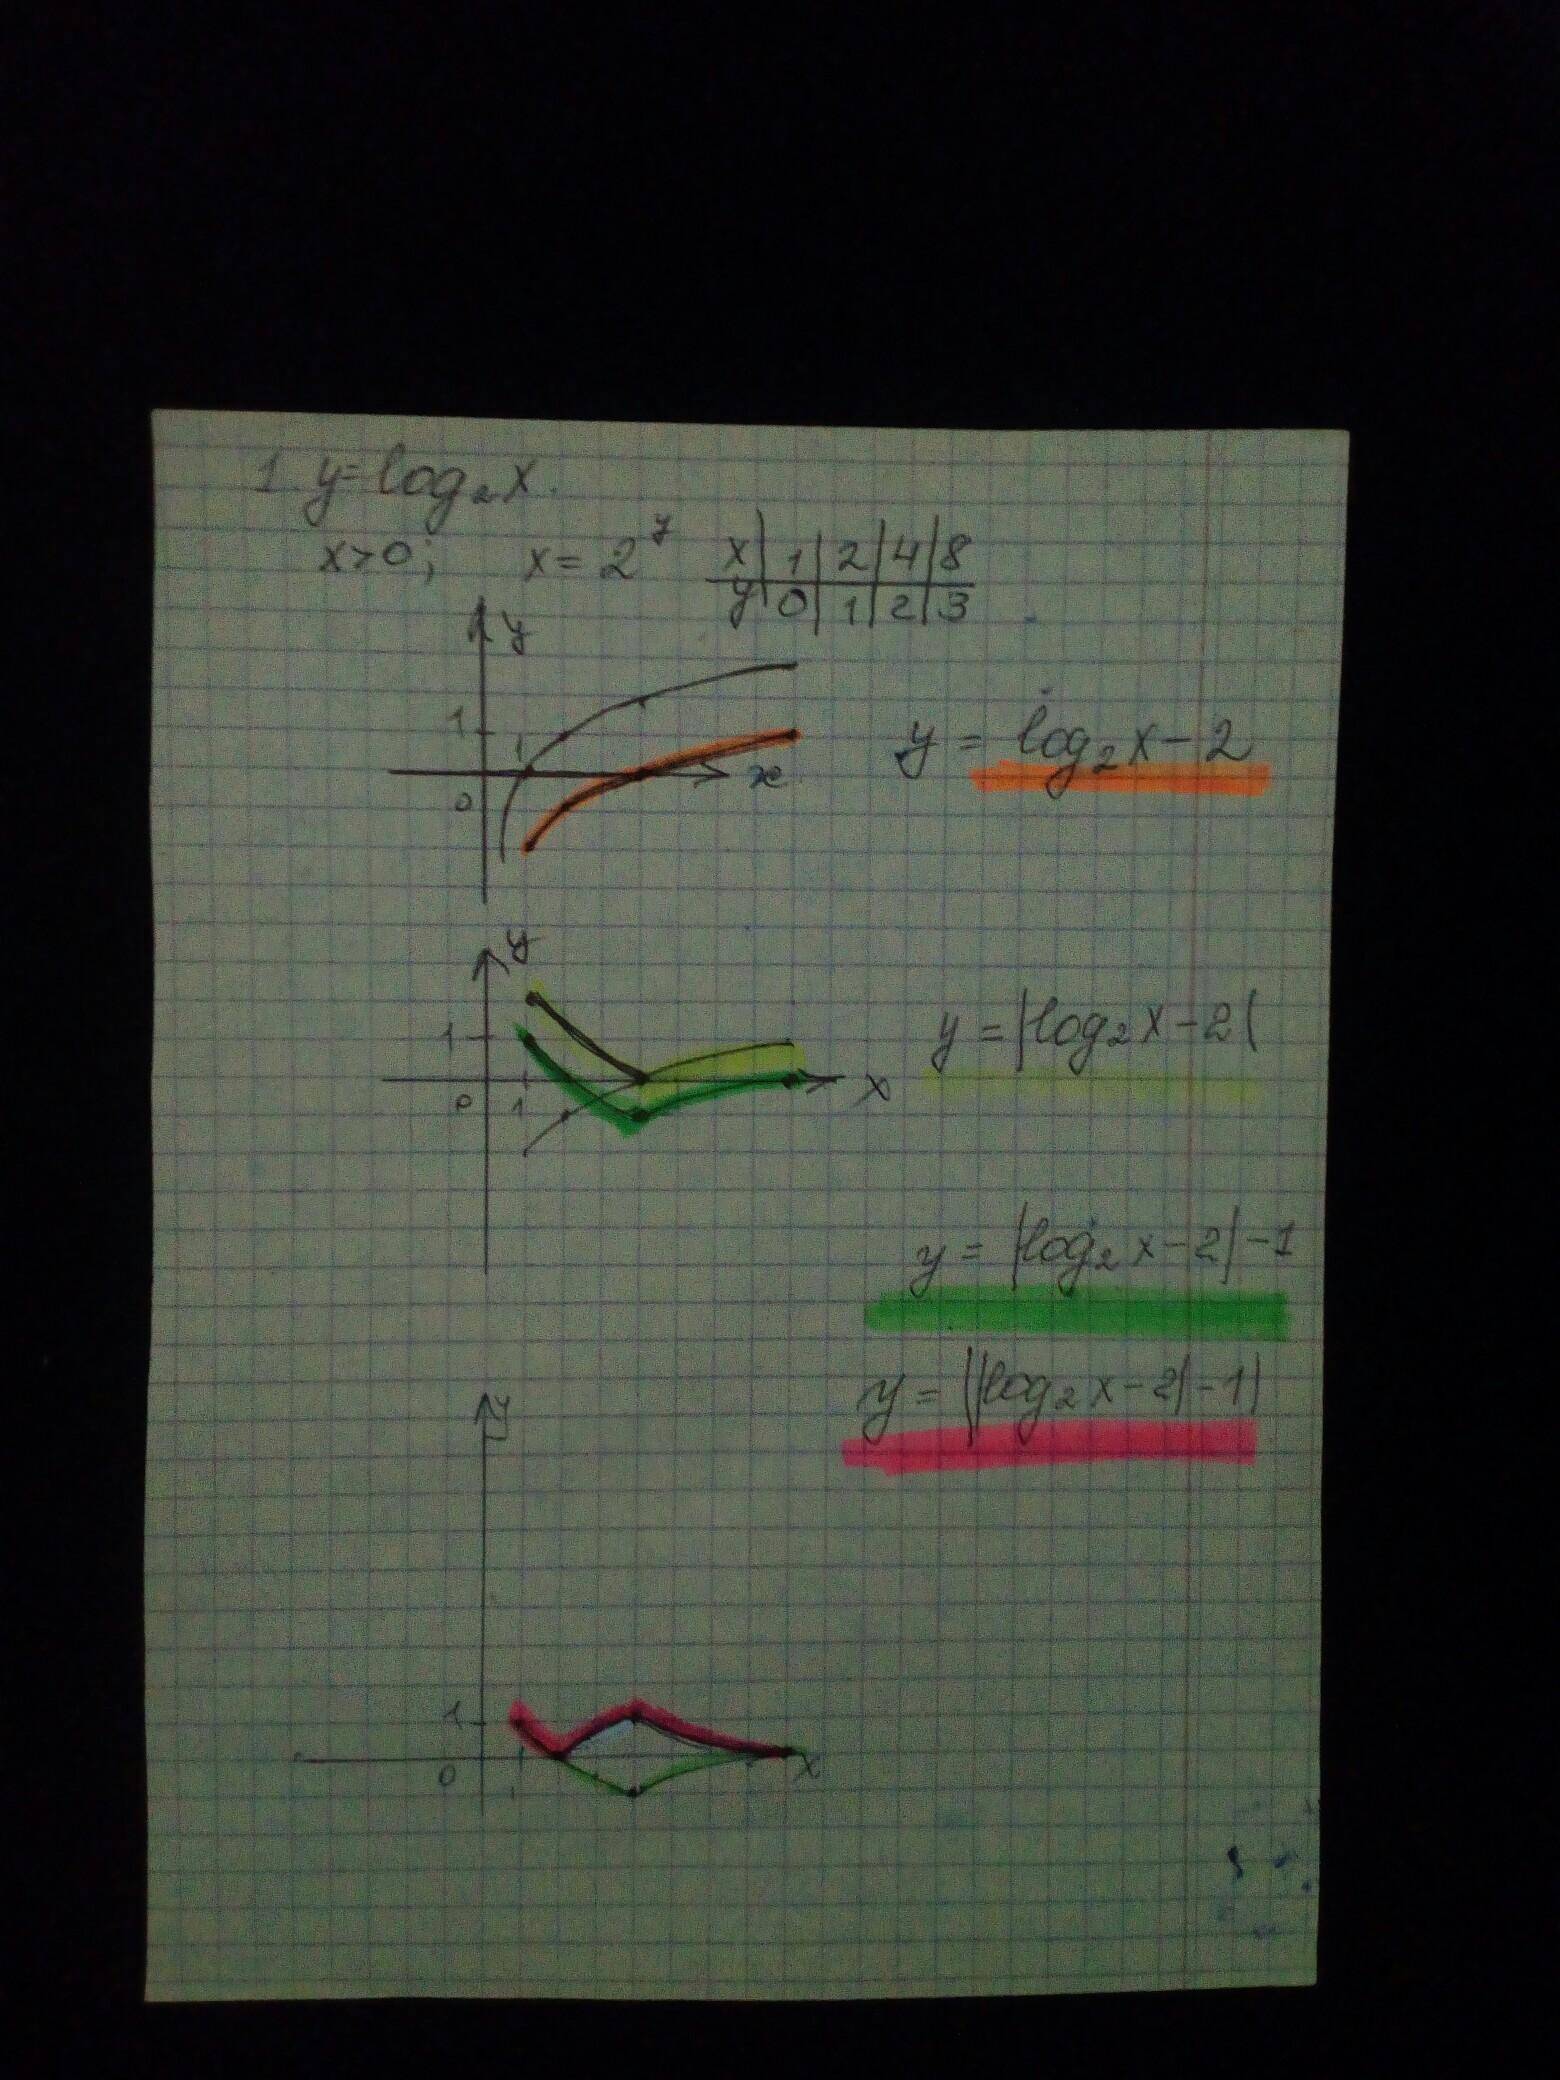 1. y=log₂x.
x>0; x=2^y x|1|2|4|8
y|0|1|2|3
y
1
1
0
x
y = log₂x-2
y
1
0 1
x
y = |log₂x-2|
y = |log₂x-2|-1
y = ||log₂x-2|-1|
y
1
0
1
x